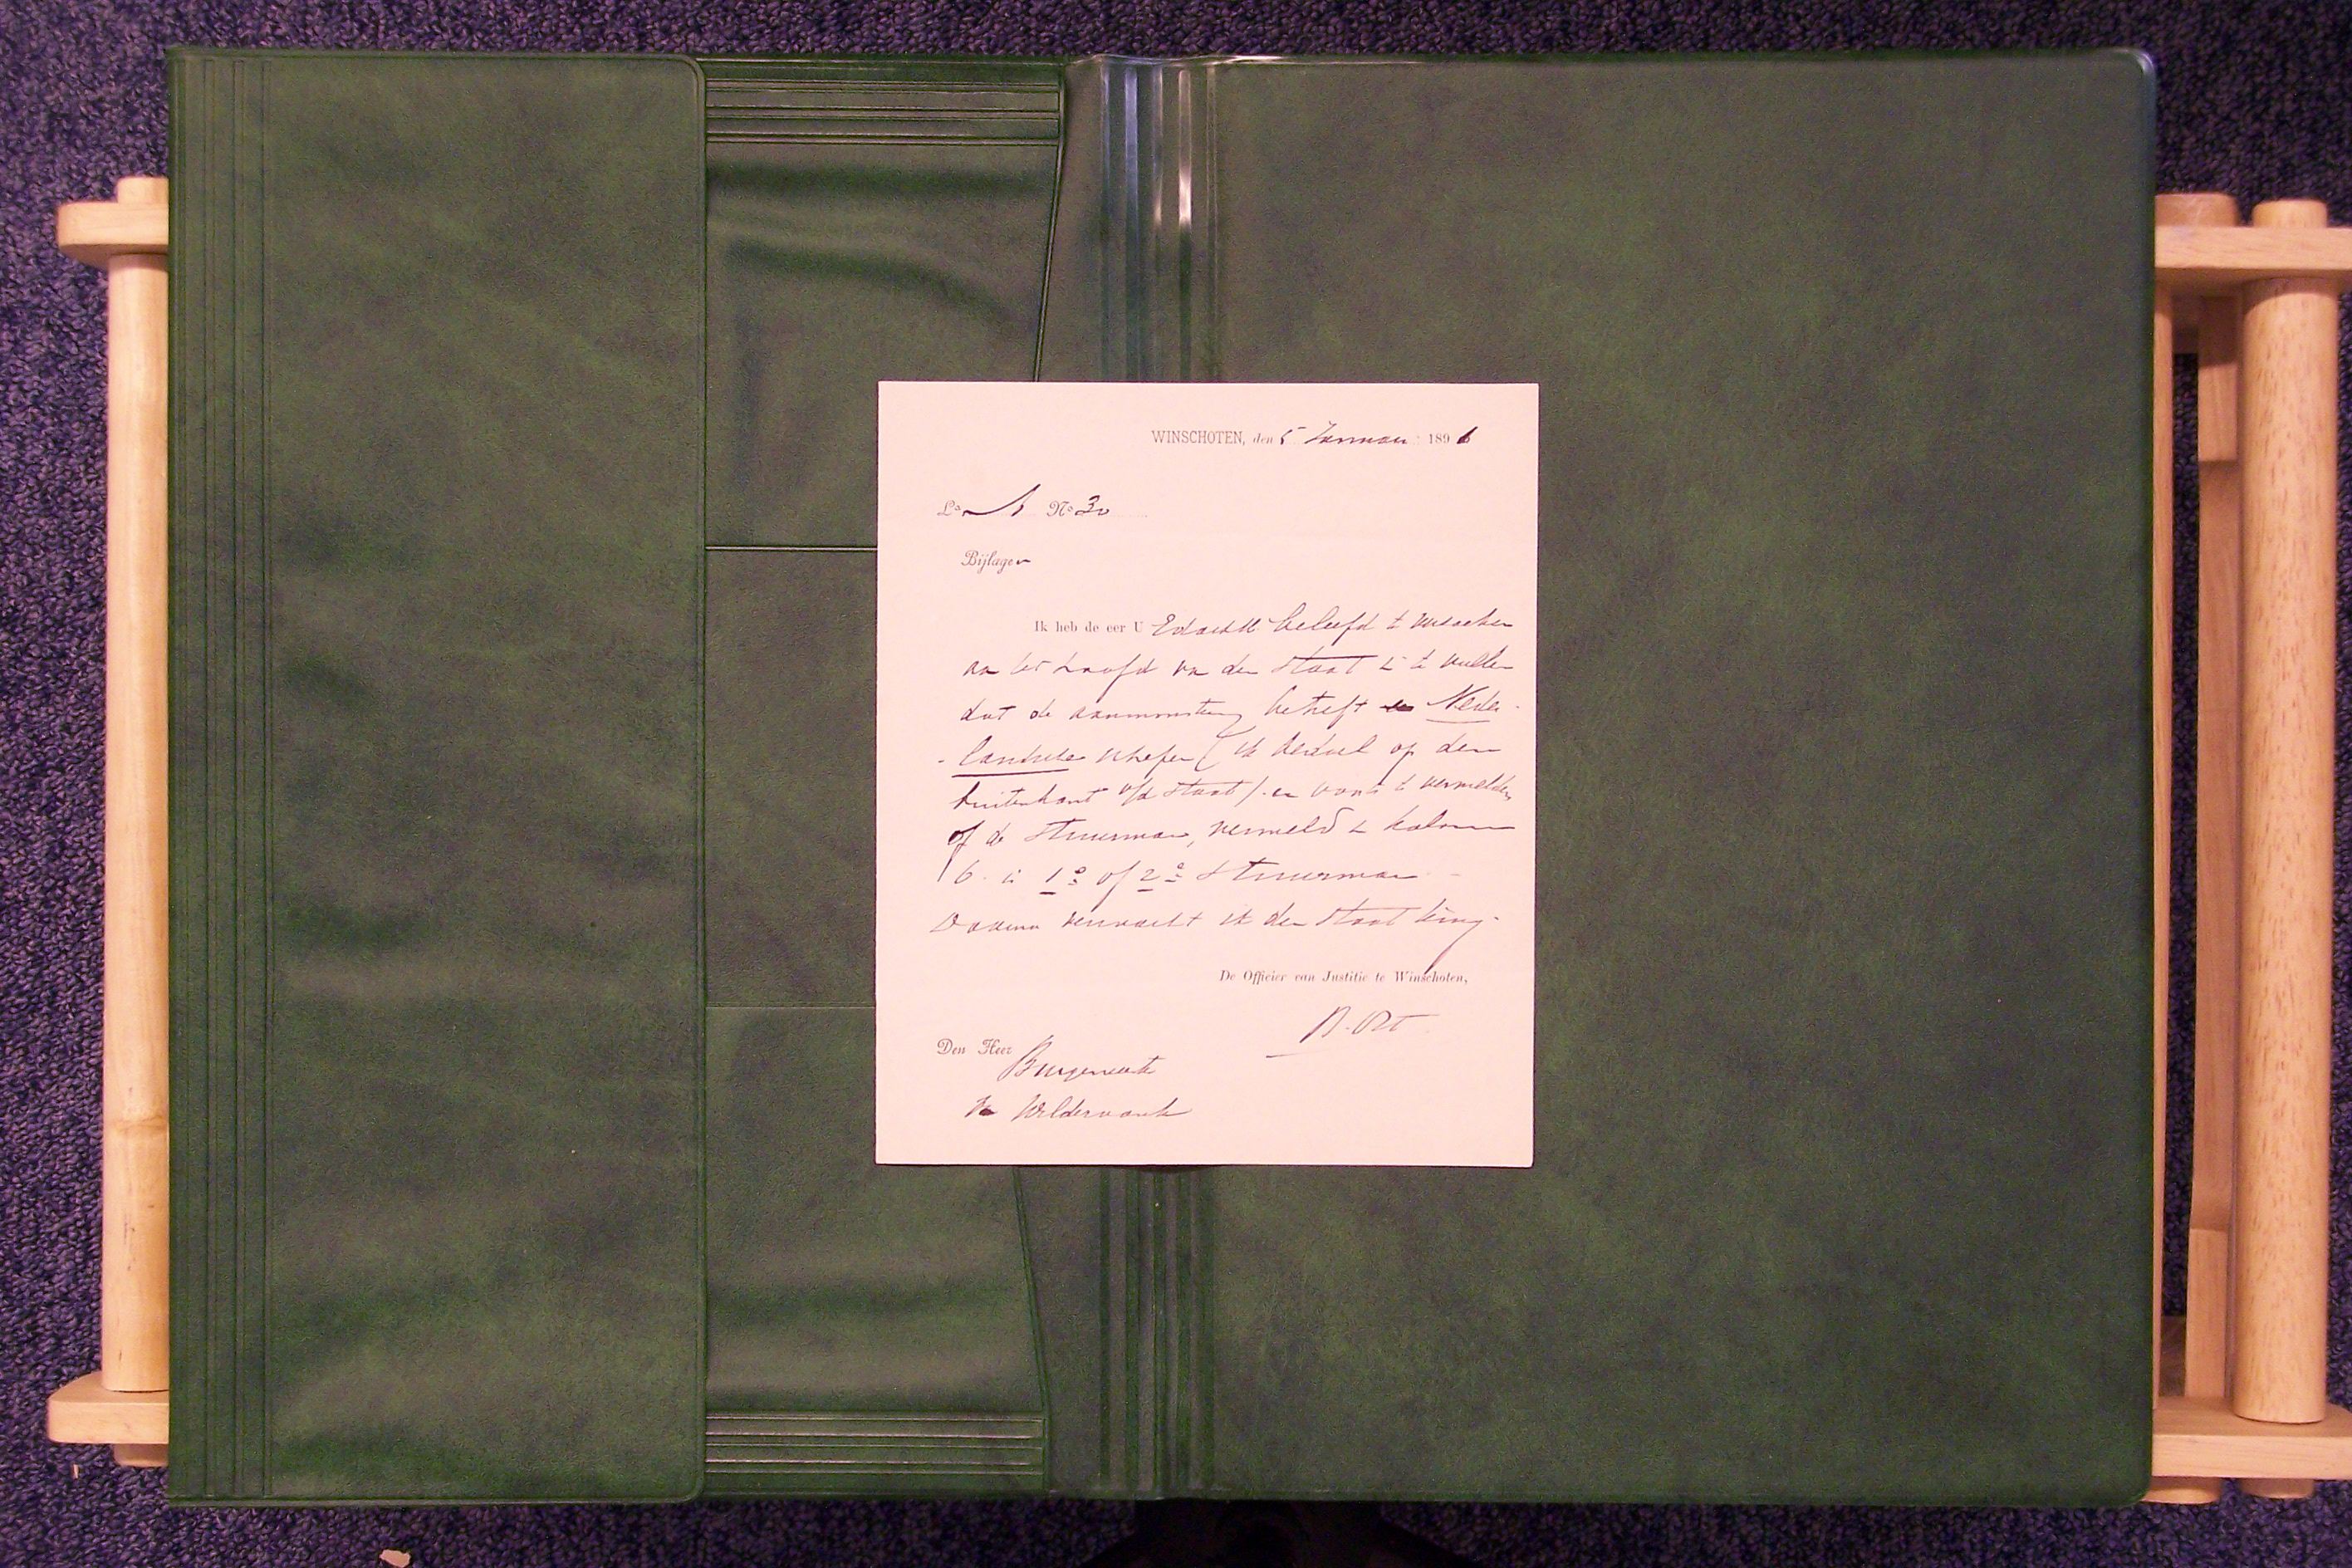 WINSCHOTEN, den 5 Januari 1896
La A No 30
Bijlagen
Ik heb de eer U Edachtb beleefd te verzoeken
aan het hoofd van den Staat in te vullen
dat de aanmonstering betreft Neder-
-landsche schepen (ik bedoel op den
buitenkant v/d Staat) en voorts te vermelden
of de Stuurman, vermeld in kolom
6 is 1e of 2e Stuurman
Daarna verwacht ik den Staat terug.
De Officier van Justitie te Winschoten,
B. Ort
Den Heer
Burgemeester
te Wildervank